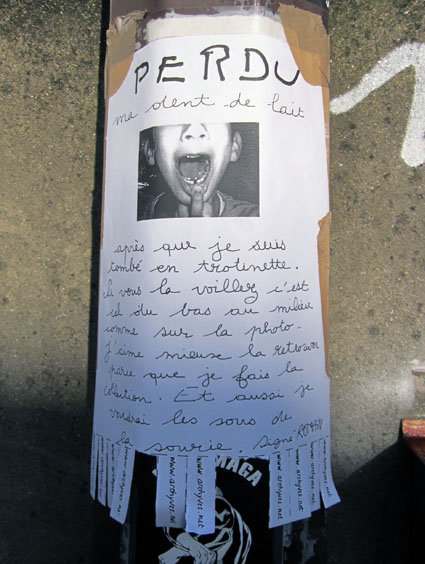 PERDU
ma dent de lait
après que je suis
tombé en trotinette.
Si vous la voillez c'est
cel du bas au milieu
comme sur la photo.
J'aime mieux la retrouver
parce que je fais la
collection. Et aussi je
voudrai les sous de
la sourie. Signé
www.archyves.net
www.archyves.net
www.archyves.net
www.archyves.net
www.archyves.net
www.archyves.net
MAGA